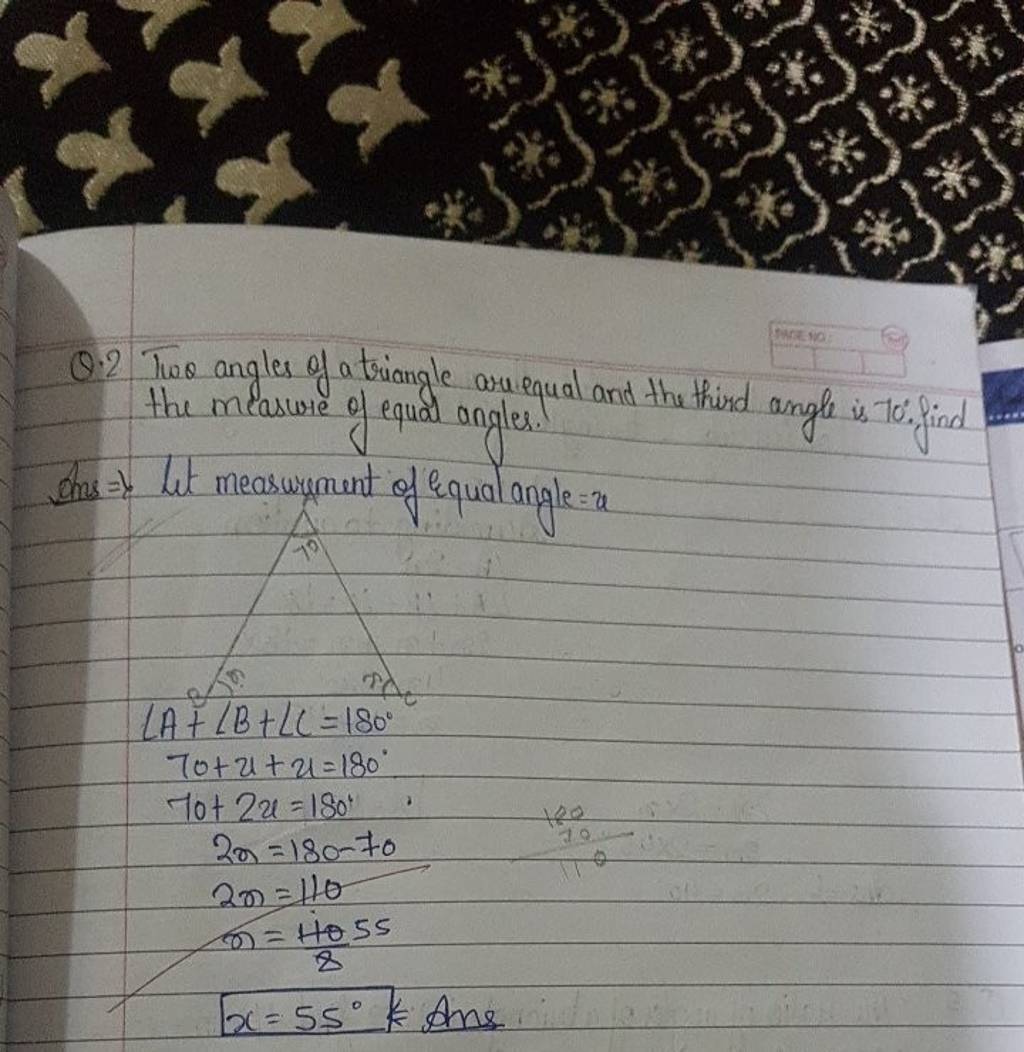 PAGE NO.:
Q.2 Two angles of a triangle are equal and the third angle is 70°. find
the measure of equal angles.
Ans => Let measurment of Equal angle = x
A
70
x x
B C
∠A + ∠B + ∠C = 180°
70 + x + x = 180°
70 + 2x = 180°
2x = 180 - 70
180
70
110
2x = 110
x = 110 55
2
x = 55° Ans